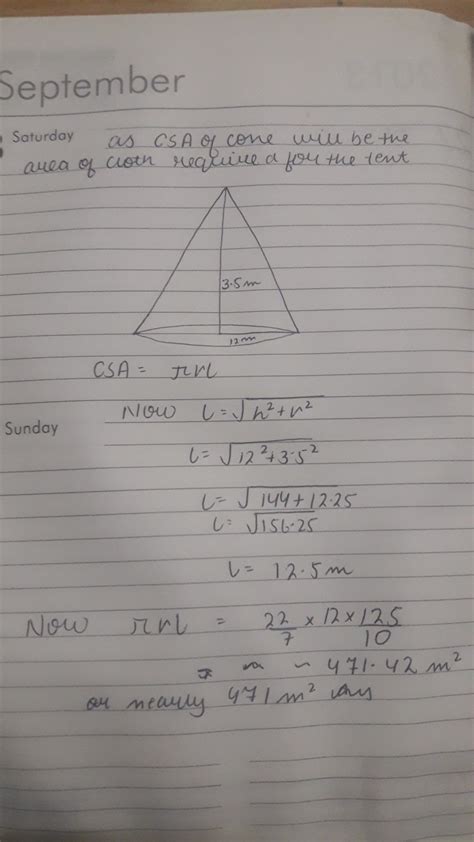 September
Saturday as CSA of cone will be the
area of cloth require d for the tent
3.5m
12m
CSA = πrl
Now l=√h²+r²
Sunday
l=√12²+3.5²
l=√144+12.25
l=√156.25
l= 12.5m
Now πrl = 22/7 × 12 × 125/10
471.42 m²
or nearly 471m²